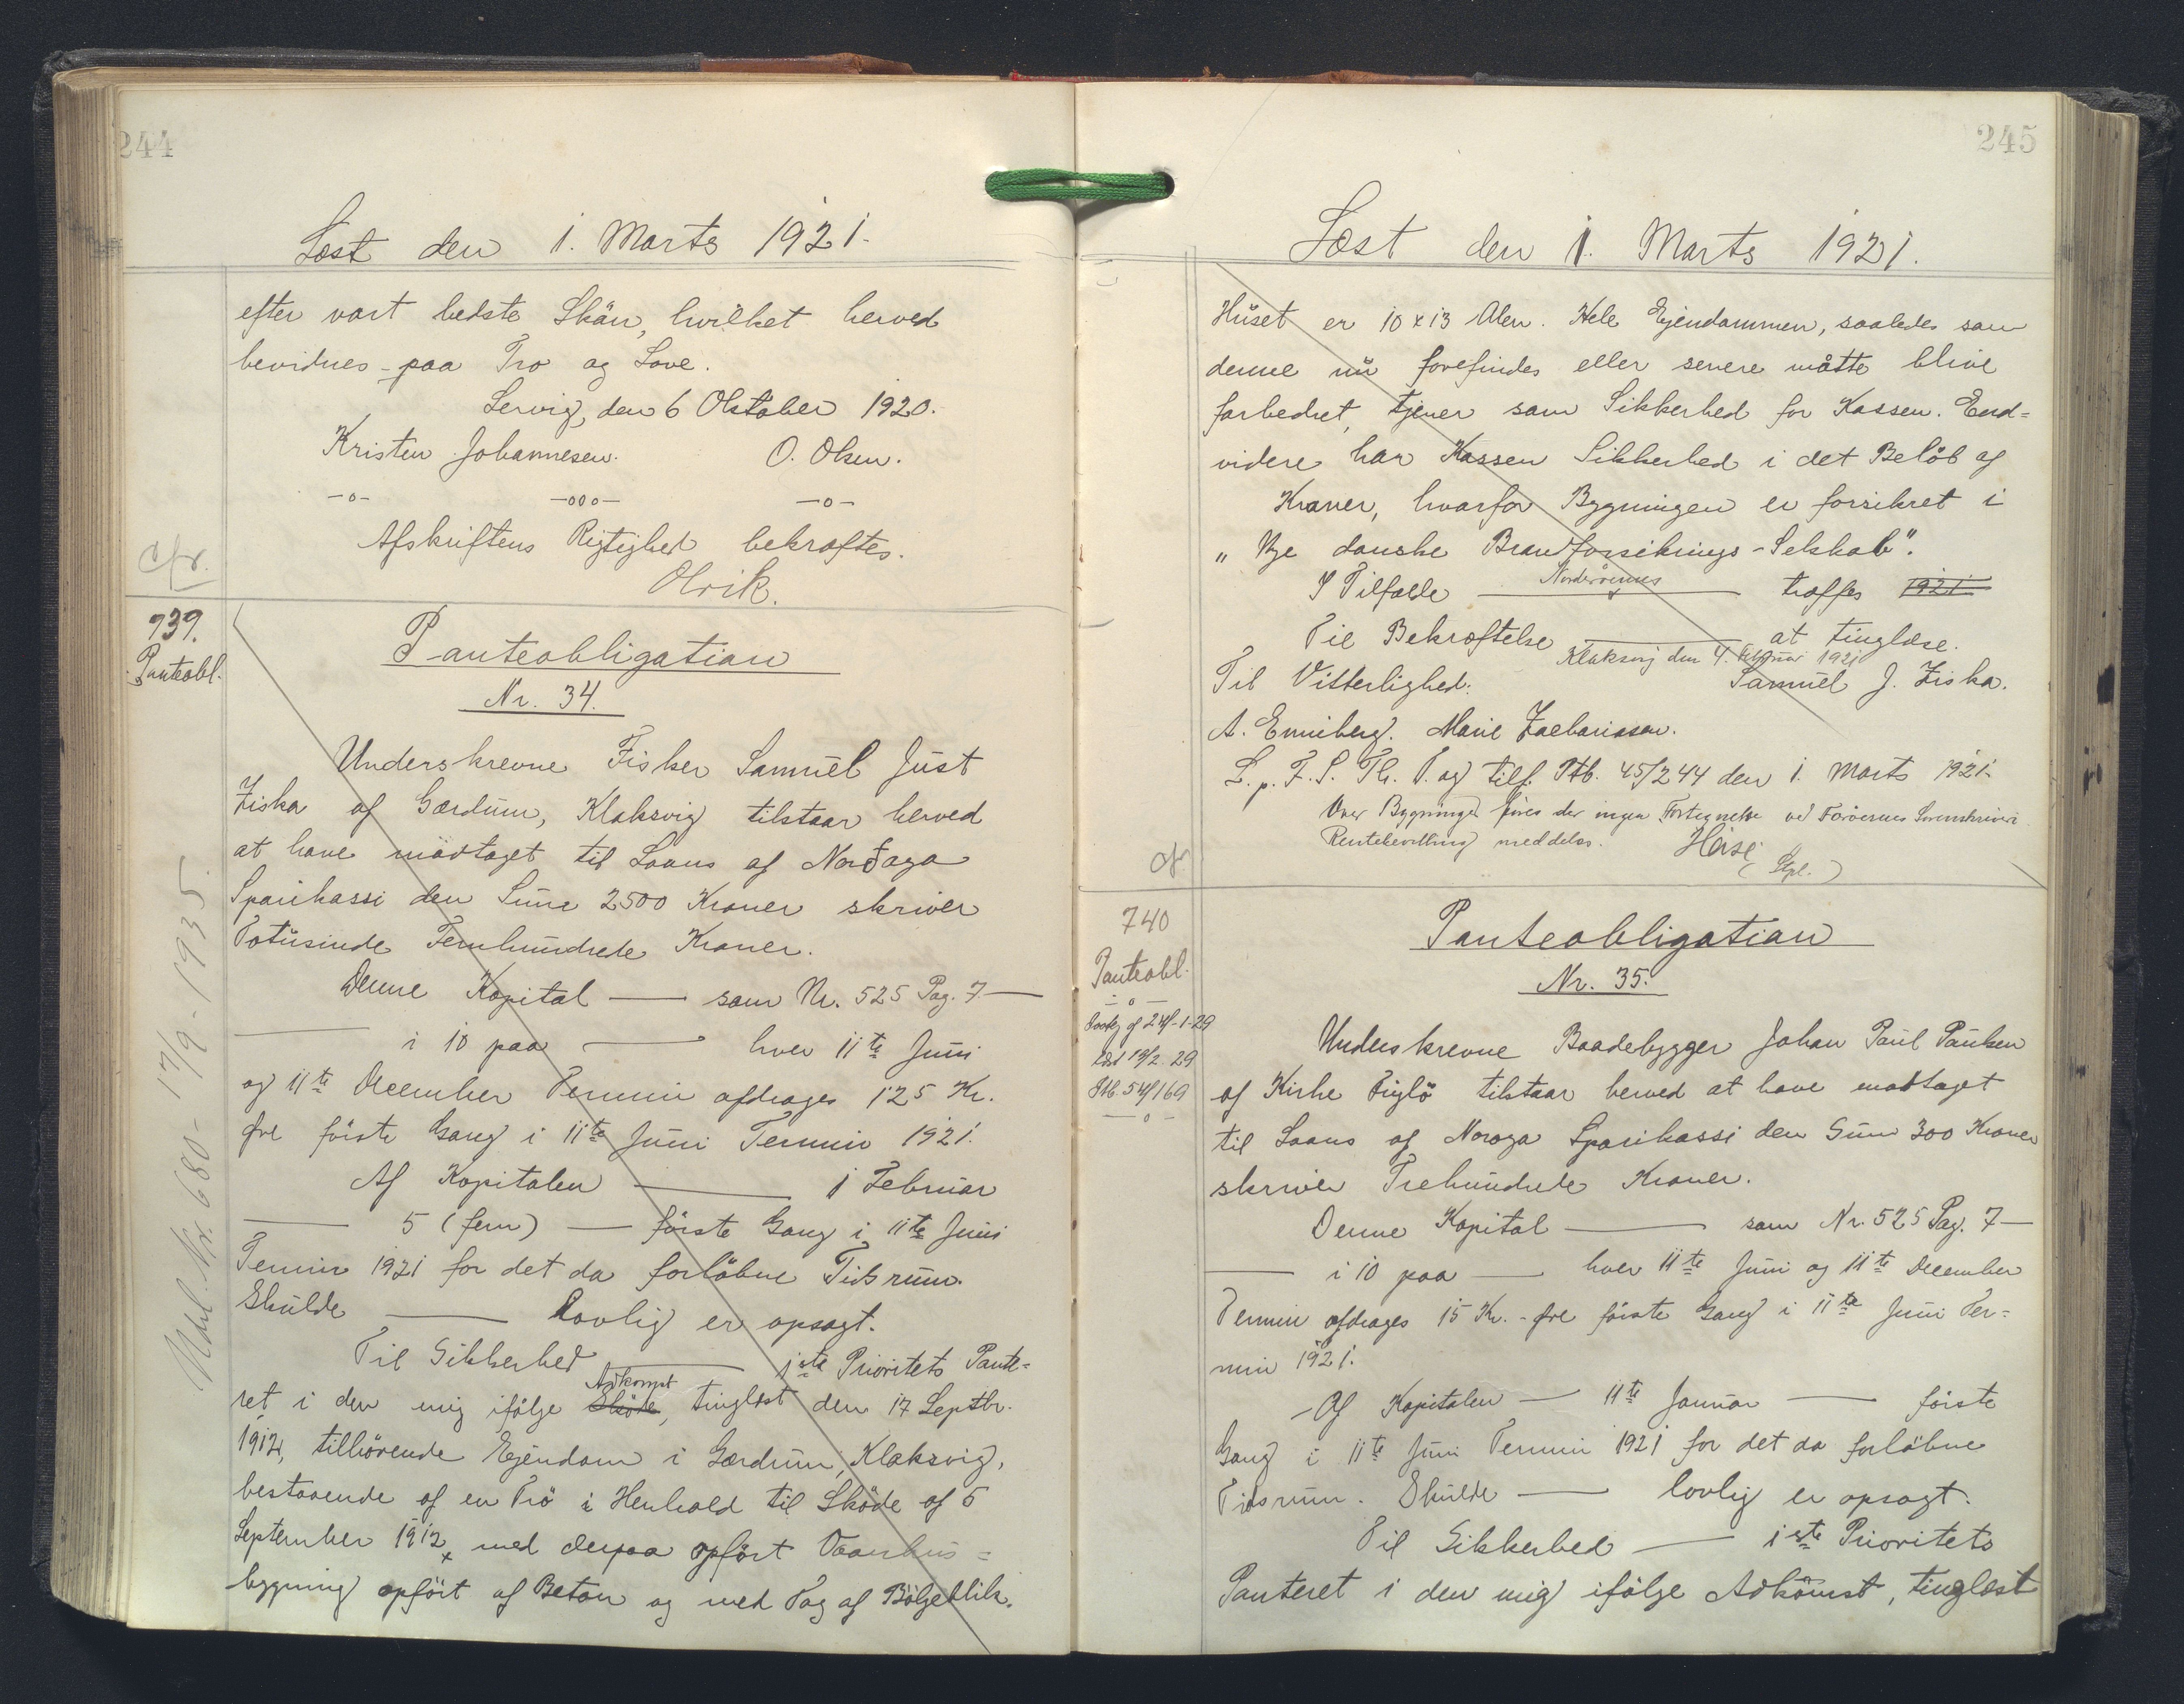 244
Læst den 1. Marts 1921.
efter vort bedste Skän, hvilket herved
bevidnes paa Tro og Love.
Servig, den 6 Oktober 1920.
Kristen Johannesen. O. Olsen.
-o- -ooo- -o-
Afskriftens Rigtighed bekræftes.
Olrik.
cfr.
739.
Panteobl.
Panteobligation
Nr. 34.
Underskrevne Fisker Samuel Just
Ziska af Gærdum, Klaksvig tilstaar herved
at have modtaget til Laans af Norðoya
Sparikassi den Sum 2500 Kroner skriver
Totusinde Femhundrede Kroner.
Denne Kapital — som Nr. 525 Pag. 7 —
— i 10 paa — hver 11te Juni
og 11te December Termin afdrages 125 Kr.
Øre förste Gang i 11te Juni Termin 1921.
Af Kapitalen — 1 Februar
— 5 (fem) — förste Gang i 11te Juni
Termin 1921 for det da forlöbne Tidsrum.
Skulde — lovlig er opsagt.
Til Sikkerhed — 1ste Prioritets Pante=
Adkomst
ret i den mig ifölge Sköde, tinglæst den 17 Septbr.
1912, tilhörende Ejendom i Gærdum, Klaksvig,
bestaaende af en Trö i Henhold til Sköde af 5
September 1912, med derpaa opfört Vaanhus=
bygning opfört af Beton og med Tag af Bölgeblik.
Udsl. Nr. 680 - 17/9 - 1935.
245
Læst den 1. Marts 1921.
Huset er 10 x 13 Alen. Hele Ejendommen, saaledes som
denne nu forefindes eller senere måtte blive
forbedret, tjener som Sikkerhed for Kassen. End=
videre har Kassen Sikkerhed i det Belöb af
Kroner, hvorfor Bygningen er forsikret i
"Nye danske Brandforsikrings-Selskab".
Norderöernes
I Tilfælde — træffes 1921
Til Bekræftelse — at tinglæse.
Klaksvig den 4. Februar 1921
Til Vitterlighed: Samuel J. Ziska.
A. Enniberg. Marie Zachariasen.
L. p. F. S. Th. T. og tilf. Ptb. 45/244 den 1. Marts 1921.
Over Bygninger föres der ingen Fortegnelse ved Færöernes Sorenskriveri
Rentebevilling meddeles. Heise
(Stpl.)
cfr
740
Panteobl.
- o -
Paateg. af 24/-1-29
Læst 19/2 29
Ptb. 54/169
- o -
Panteobligation
Nr. 35.
Underskrevne Baadebygger Johan Paul Paulsen
af Kirke Fuglö tilstaar herved at have modtaget
til Laans af Noroya Sparikassi den Sum 300 Kroner
skriver Trehundrede Kroner.
Denne Kapital — som Nr. 525 Pag. 7 —
— i 10 paa — hver 11te Juni og 11te December
Termin afdrages 15 Kr. - Øre förste Gang i 11te Juni Ter=
min 1921.
Af Kapitalen — 11te Januar — förste
Gang i 11te Juni Termin 1921 for det da forlöbne
Tidsrum. Skulde — lovlig er opsagt.
Til Sikkerhed — 1ste Prioritets
Panteret i den mig ifölge Adkomst, tinglæst